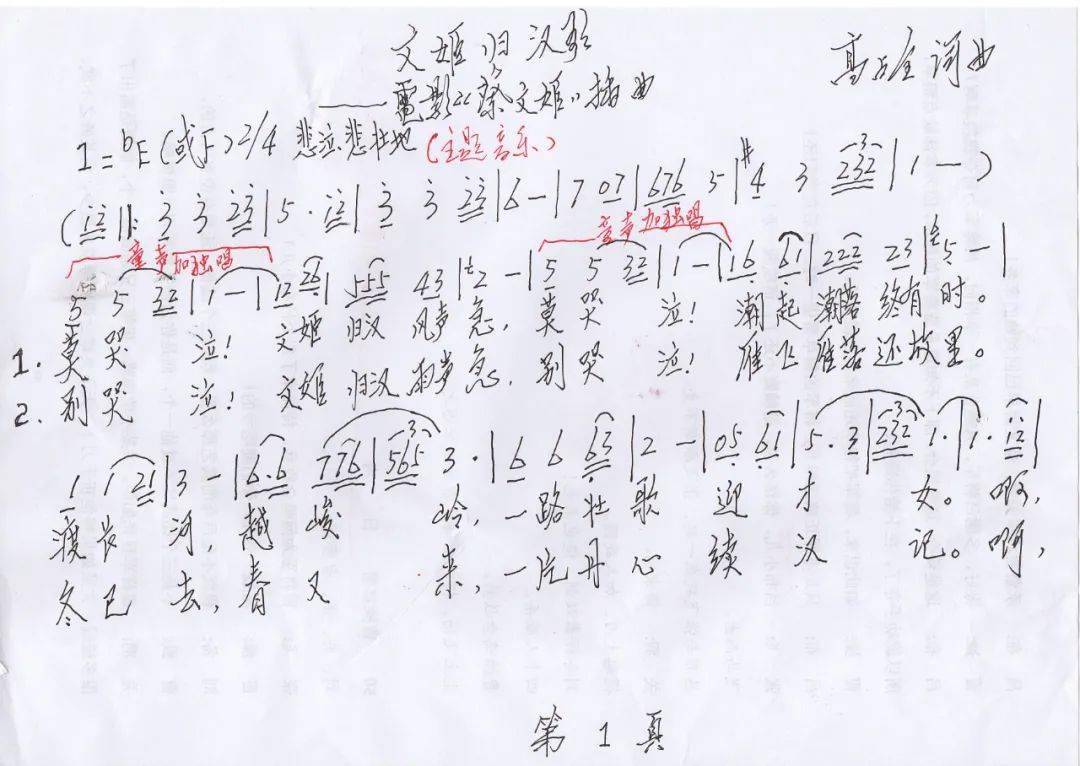 文姬归汉歌
高占全词曲
——電影《蔡文姬》插曲
1=bE(或F)2/4 悲泣、悲壮地(主题音乐)
(i2||: 3 3 23|5 · i2|3 3 23|6 -|7 07|676 5|#4 3 232|1 -)
童声加独唱 童声加独唱
5 5 32|1 -|12 26|555 43|2 -|5 5 32|1 -|16 61|222 23|5 -|
1. 莫哭泣!文姬归汉风声急,莫哭泣!潮起潮落终有时。
2. 别哭泣!文姬归汉羽声急,别哭泣!雁飞雁落还故里。
1 1 21|3 -|6·6 776|565 3 ·|6 6 63|2 -|05 61|5 · 3|232 1 ·|1 · 12|
渡长河,越峻岭,一路壮歌迎才女。啊,
冬已去,春又来,一片丹心续汉记。啊,
第 1 頁